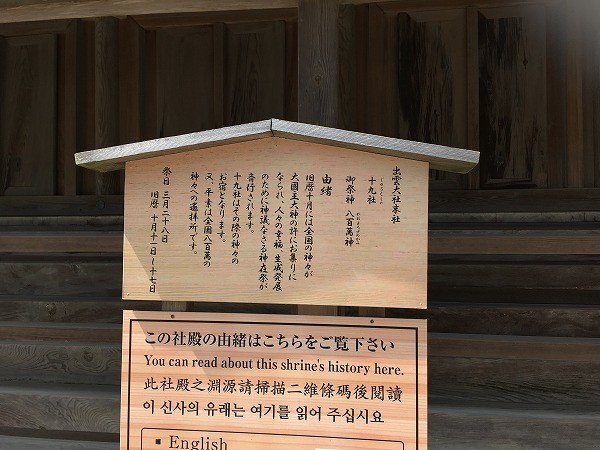 出雲大社末社
十九社
じゅうくしゃ
御祭神 八百萬神
やおよろずのかみ
由緒
旧暦十月には全国の神々が
大國主大神の許にお集りに
なられ、人々の幸福、生成発展
のために神議なさる神在祭が
斎行されます。
十九社はその際の神々の
お宿となります。
又、平素は全国八百萬の
神々への遥拝所です。
祭日 三月二十八日
旧暦 十月十一日~十七日
この社殿の由緒はこちらをご覧下さい
You can read about this shrine's history here.
此社殿之淵源請掃描二維條碼後閱讀
이 신사의 유래는 여기를 읽어 주십시요
■ English